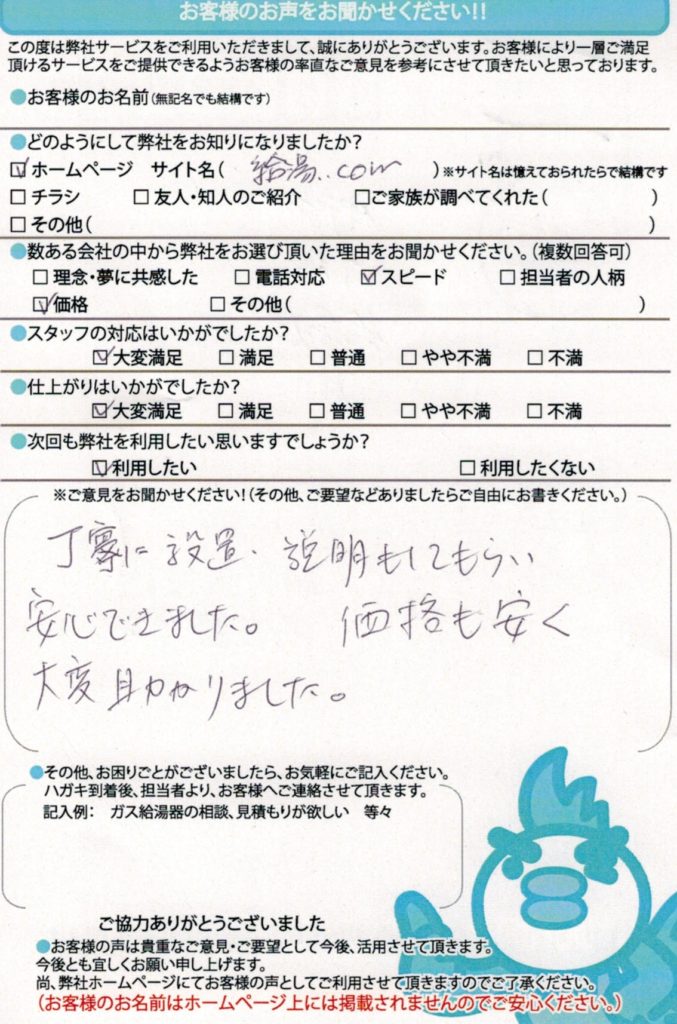 お客様のお声をお聞かせください!!
この度は弊社サービスをご利用いただきまして、誠にありがとうございます。お客様により一層ご満足
頂けるサービスをご提供できるようお客様の率直なご意見を参考にさせて頂きたいと思っております。
●お客様のお名前(無記名でも結構です)
●どのようにして弊社をお知りになりましたか?
☑ホームページ サイト名( 給湯.com )※サイト名は憶えておられたらで結構です
□チラシ □友人・知人のご紹介 □ご家族が調べてくれた( )
□その他( )
●数ある会社の中から弊社をお選び頂いた理由をお聞かせください。(複数回答可)
□理念・夢に共感した □電話対応 ☑スピード □担当者の人柄
☑価格 □その他( )
●スタッフの対応はいかがでしたか?
☑大変満足 □満足 □普通 □やや不満 □不満
●仕上がりはいかがでしたか?
☑大変満足 □満足 □普通 □やや不満 □不満
●次回も弊社を利用したい思いますでしょうか?
☑利用したい □利用したくない
※ご意見をお聞かせください!(その他、ご要望などありましたらご自由にお書きください。)
丁寧に設置、説明もしてもらい
安心できました。 価格も安く
大変助かりました。
●その他、お困りごとがございましたら、お気軽にご記入ください。
ハガキ到着後、担当者より、お客様へご連絡させて頂きます。
記入例: ガス給湯器の相談、見積もりが欲しい 等々
ご協力ありがとうございました
●お客様の声は貴重なご意見・ご要望として今後、活用させて頂きます。
今後とも宜しくお願い申し上げます。
尚、弊社ホームページにてお客様の声としてご利用させて頂きますのでご了承ください。
(お客様のお名前はホームページ上には掲載されませんのでご安心ください。)